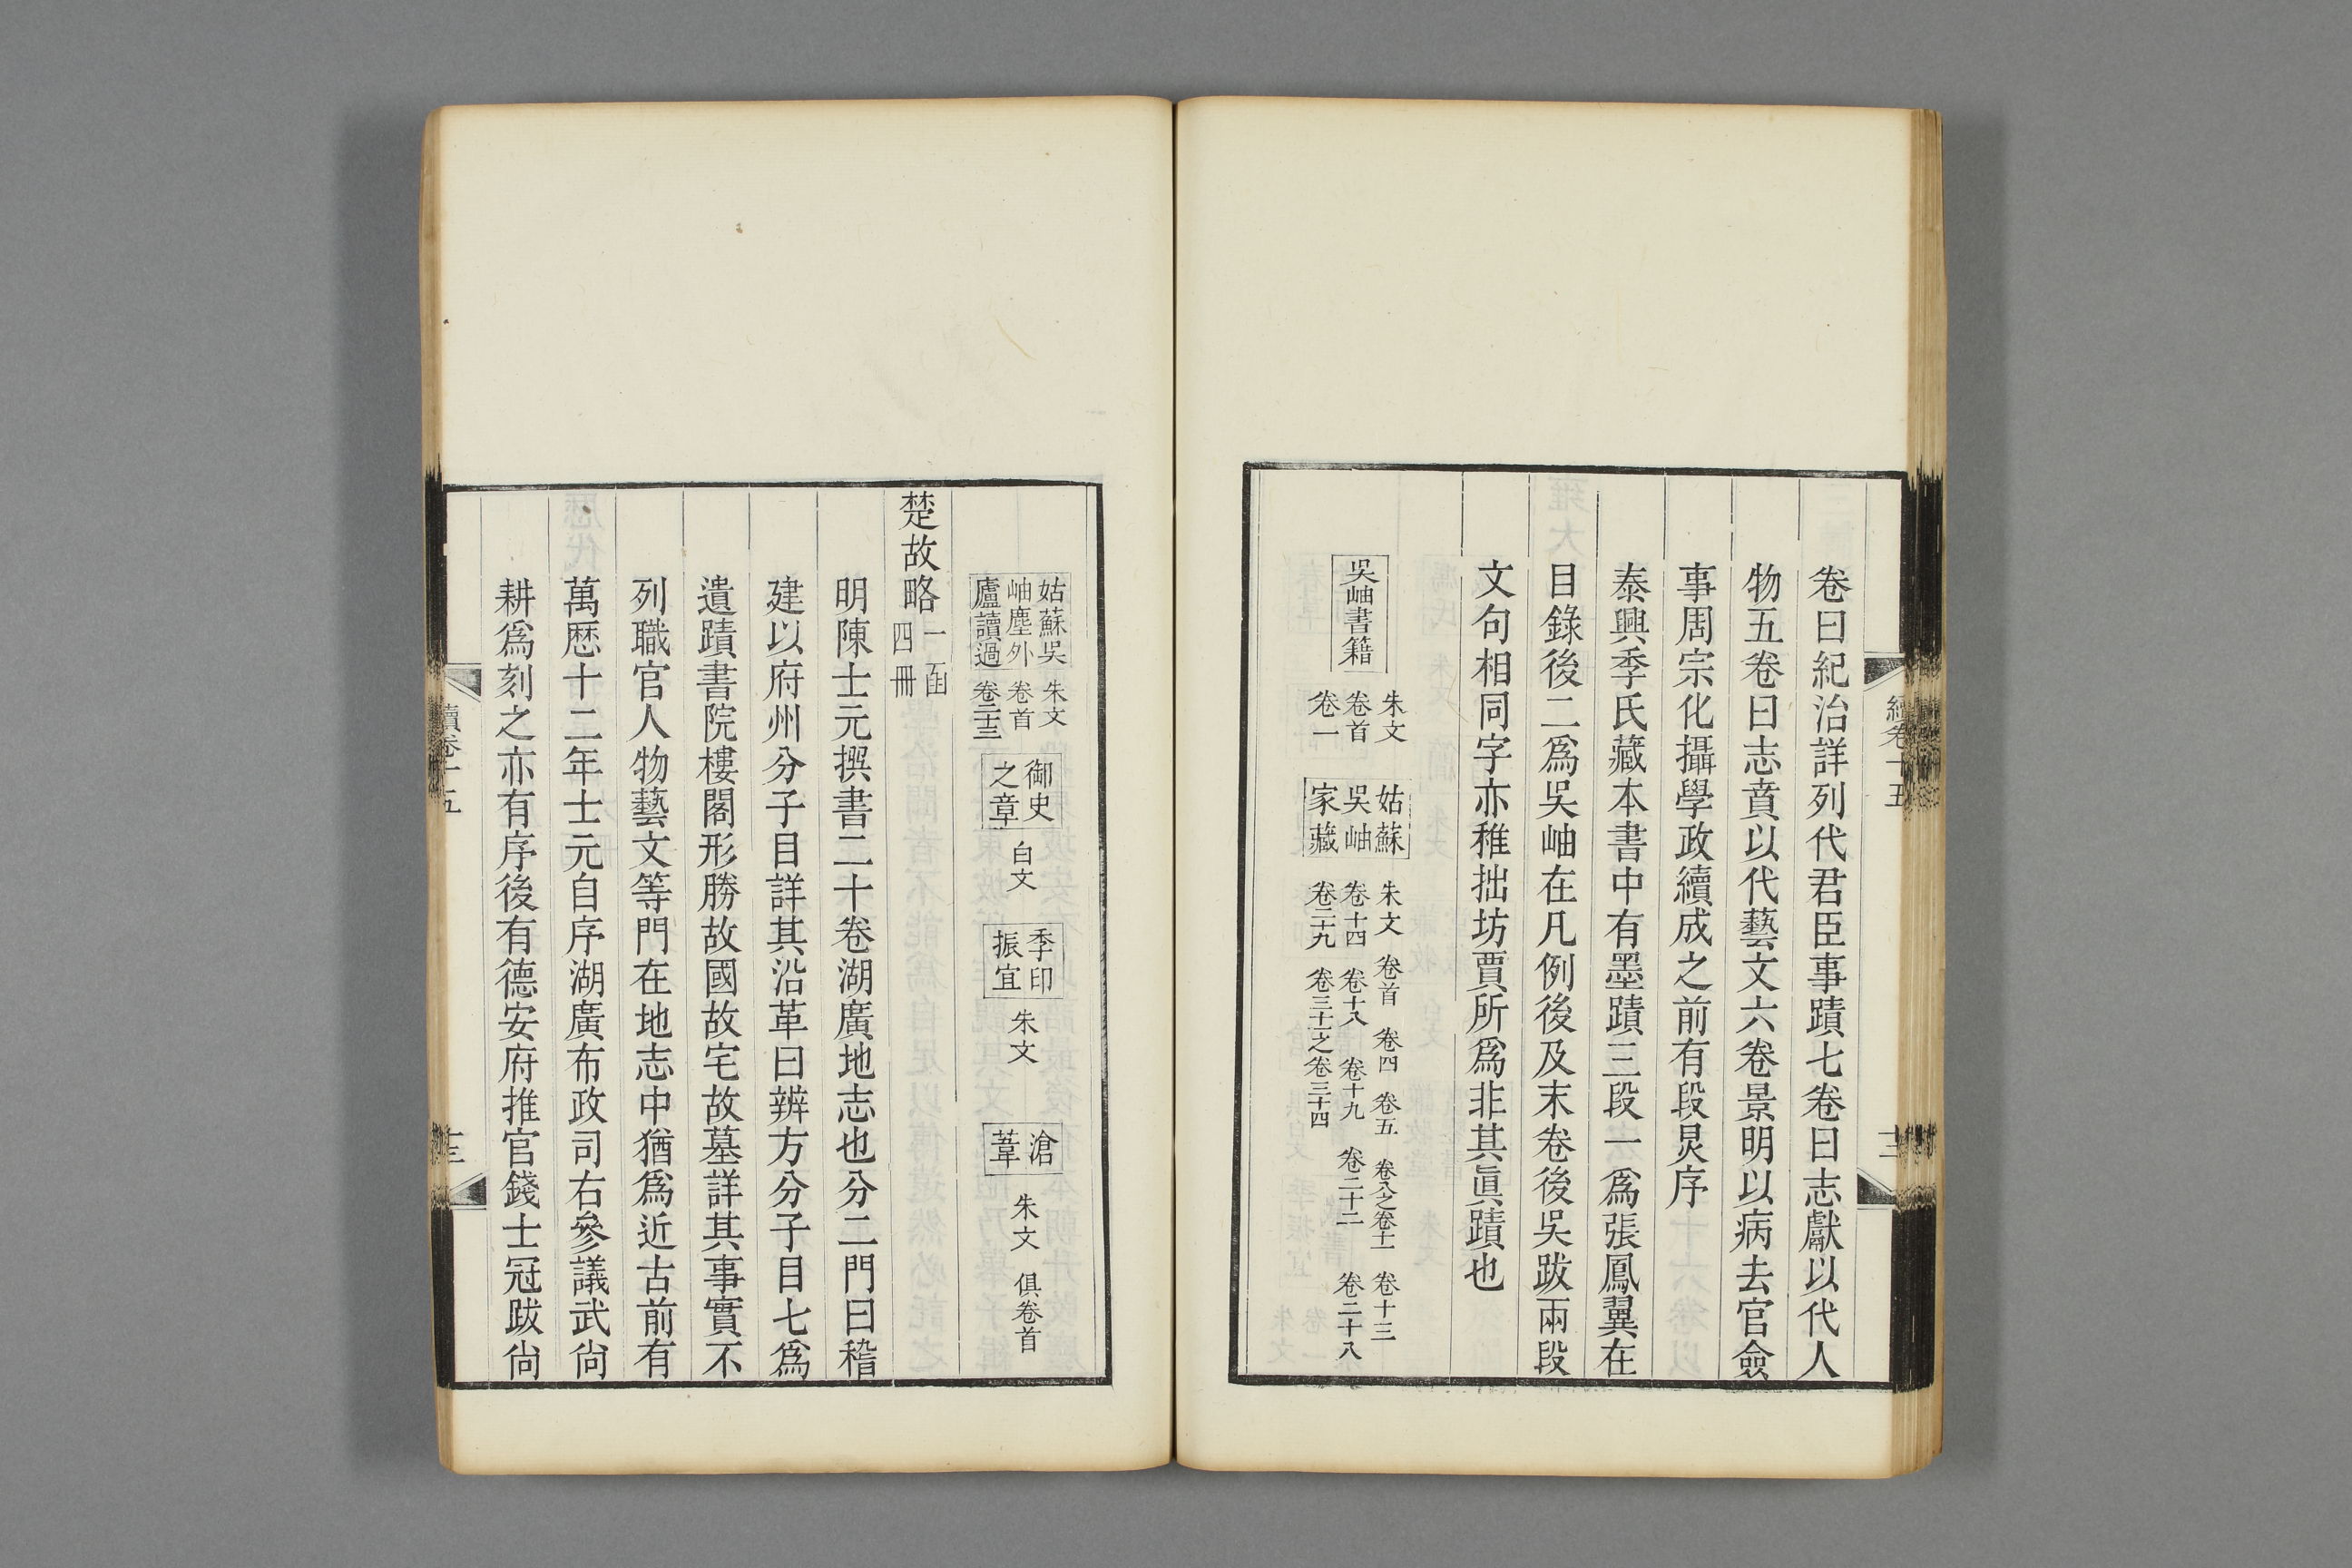 卷曰紀治詳列代君臣事蹟七卷曰志獻以代人
物五卷曰志賁以代藝文六卷景明以病去官僉
事周宗化攝學政續成之前有段炅序
泰興季氏藏本書中有墨蹟三段一爲張鳳翼在
目錄後二爲吳岫在凡例後及末卷後吳跋兩段
文句相同字亦稚拙坊賈所爲非其眞蹟也
吳岫書籍
朱文
卷首
卷一
姑蘇
吳岫
家藏
朱文 卷首 卷四 卷五 卷八之卷十一 卷十三
卷十四 卷十八 卷十九 卷二十二 卷二十八
卷二十九 卷三十一之卷三十四
姑蘇吳
岫塵外
廬讀過
朱文
卷首
卷二十三
御史
之章
白文
季印
振宜
朱文
滄
葦
朱文
俱卷首
楚故略
一函
四冊
明陳士元撰書二十卷湖廣地志也分二門曰稽
建以府州分子目詳其沿革曰辨方分子目七爲
遺蹟書院樓閣形勝故國故宅故墓詳其事實不
列職官人物藝文等門在地志中猶爲近古前有
萬厯十二年士元自序湖廣布政司右參議武尙
耕爲刻之亦有序後有德安府推官錢士冠跋尙
續卷十五
十三